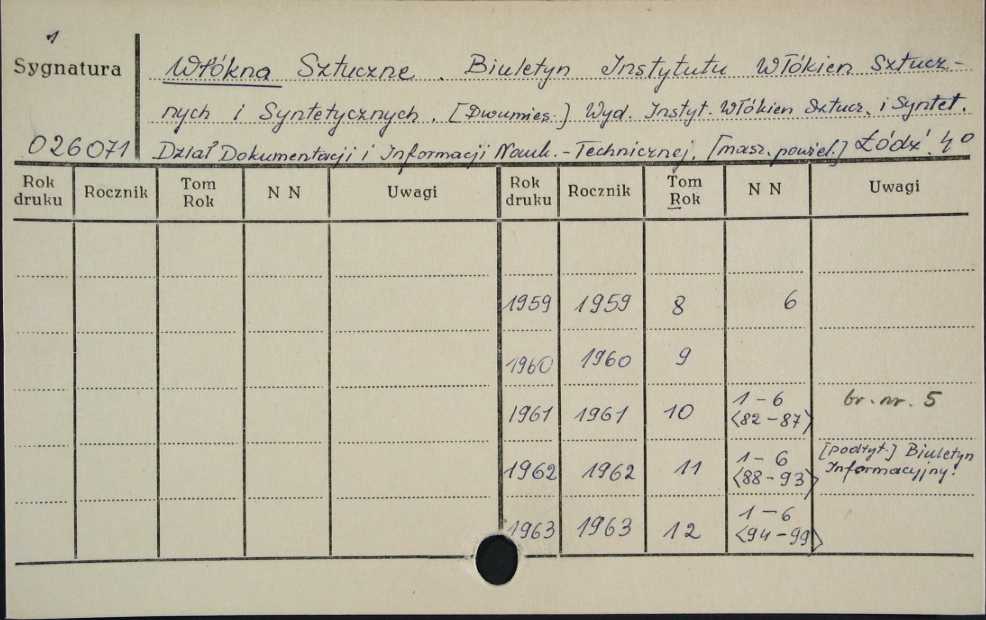 1
Sygnatura
026071
Włókna Sztuczne. Biuletyn Instytutu Włókien Sztucz-
nych i Syntetycznych. [Dwumies.] Wyd. Instyt. Włókien Sztucz. i Syntet.
Dział Dokumentacji i Informacji Nauk.-Technicznej. [masz. powiel.] Łódź. 4°
Rok druku Rocznik Tom Rok N N Uwagi Rok druku Rocznik Tom Rok N N Uwagi
1959 1959 8 6
1960 1960 9
1961 1961 10 1-6 <82-87> br. nr. 5
1962 1962 11 1-6 <88-93> [podtyt.] Biuletyn Informacyjny.
1963 1963 12 1-6 <94-99>